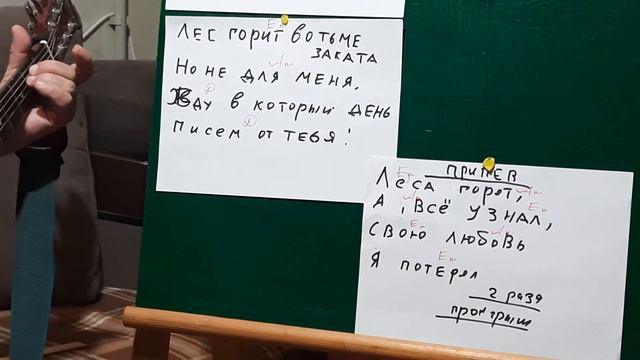 Em
Лес горит во тьме
заката
Am
Но не для меня.
D
Жду в который день
D
писем от тебя!
припев
Em Am
Леса горят,
Am Em
А я всё узнал,
Em Am
Свою любовь
Em
Я потерял
2 раза
проигрыш